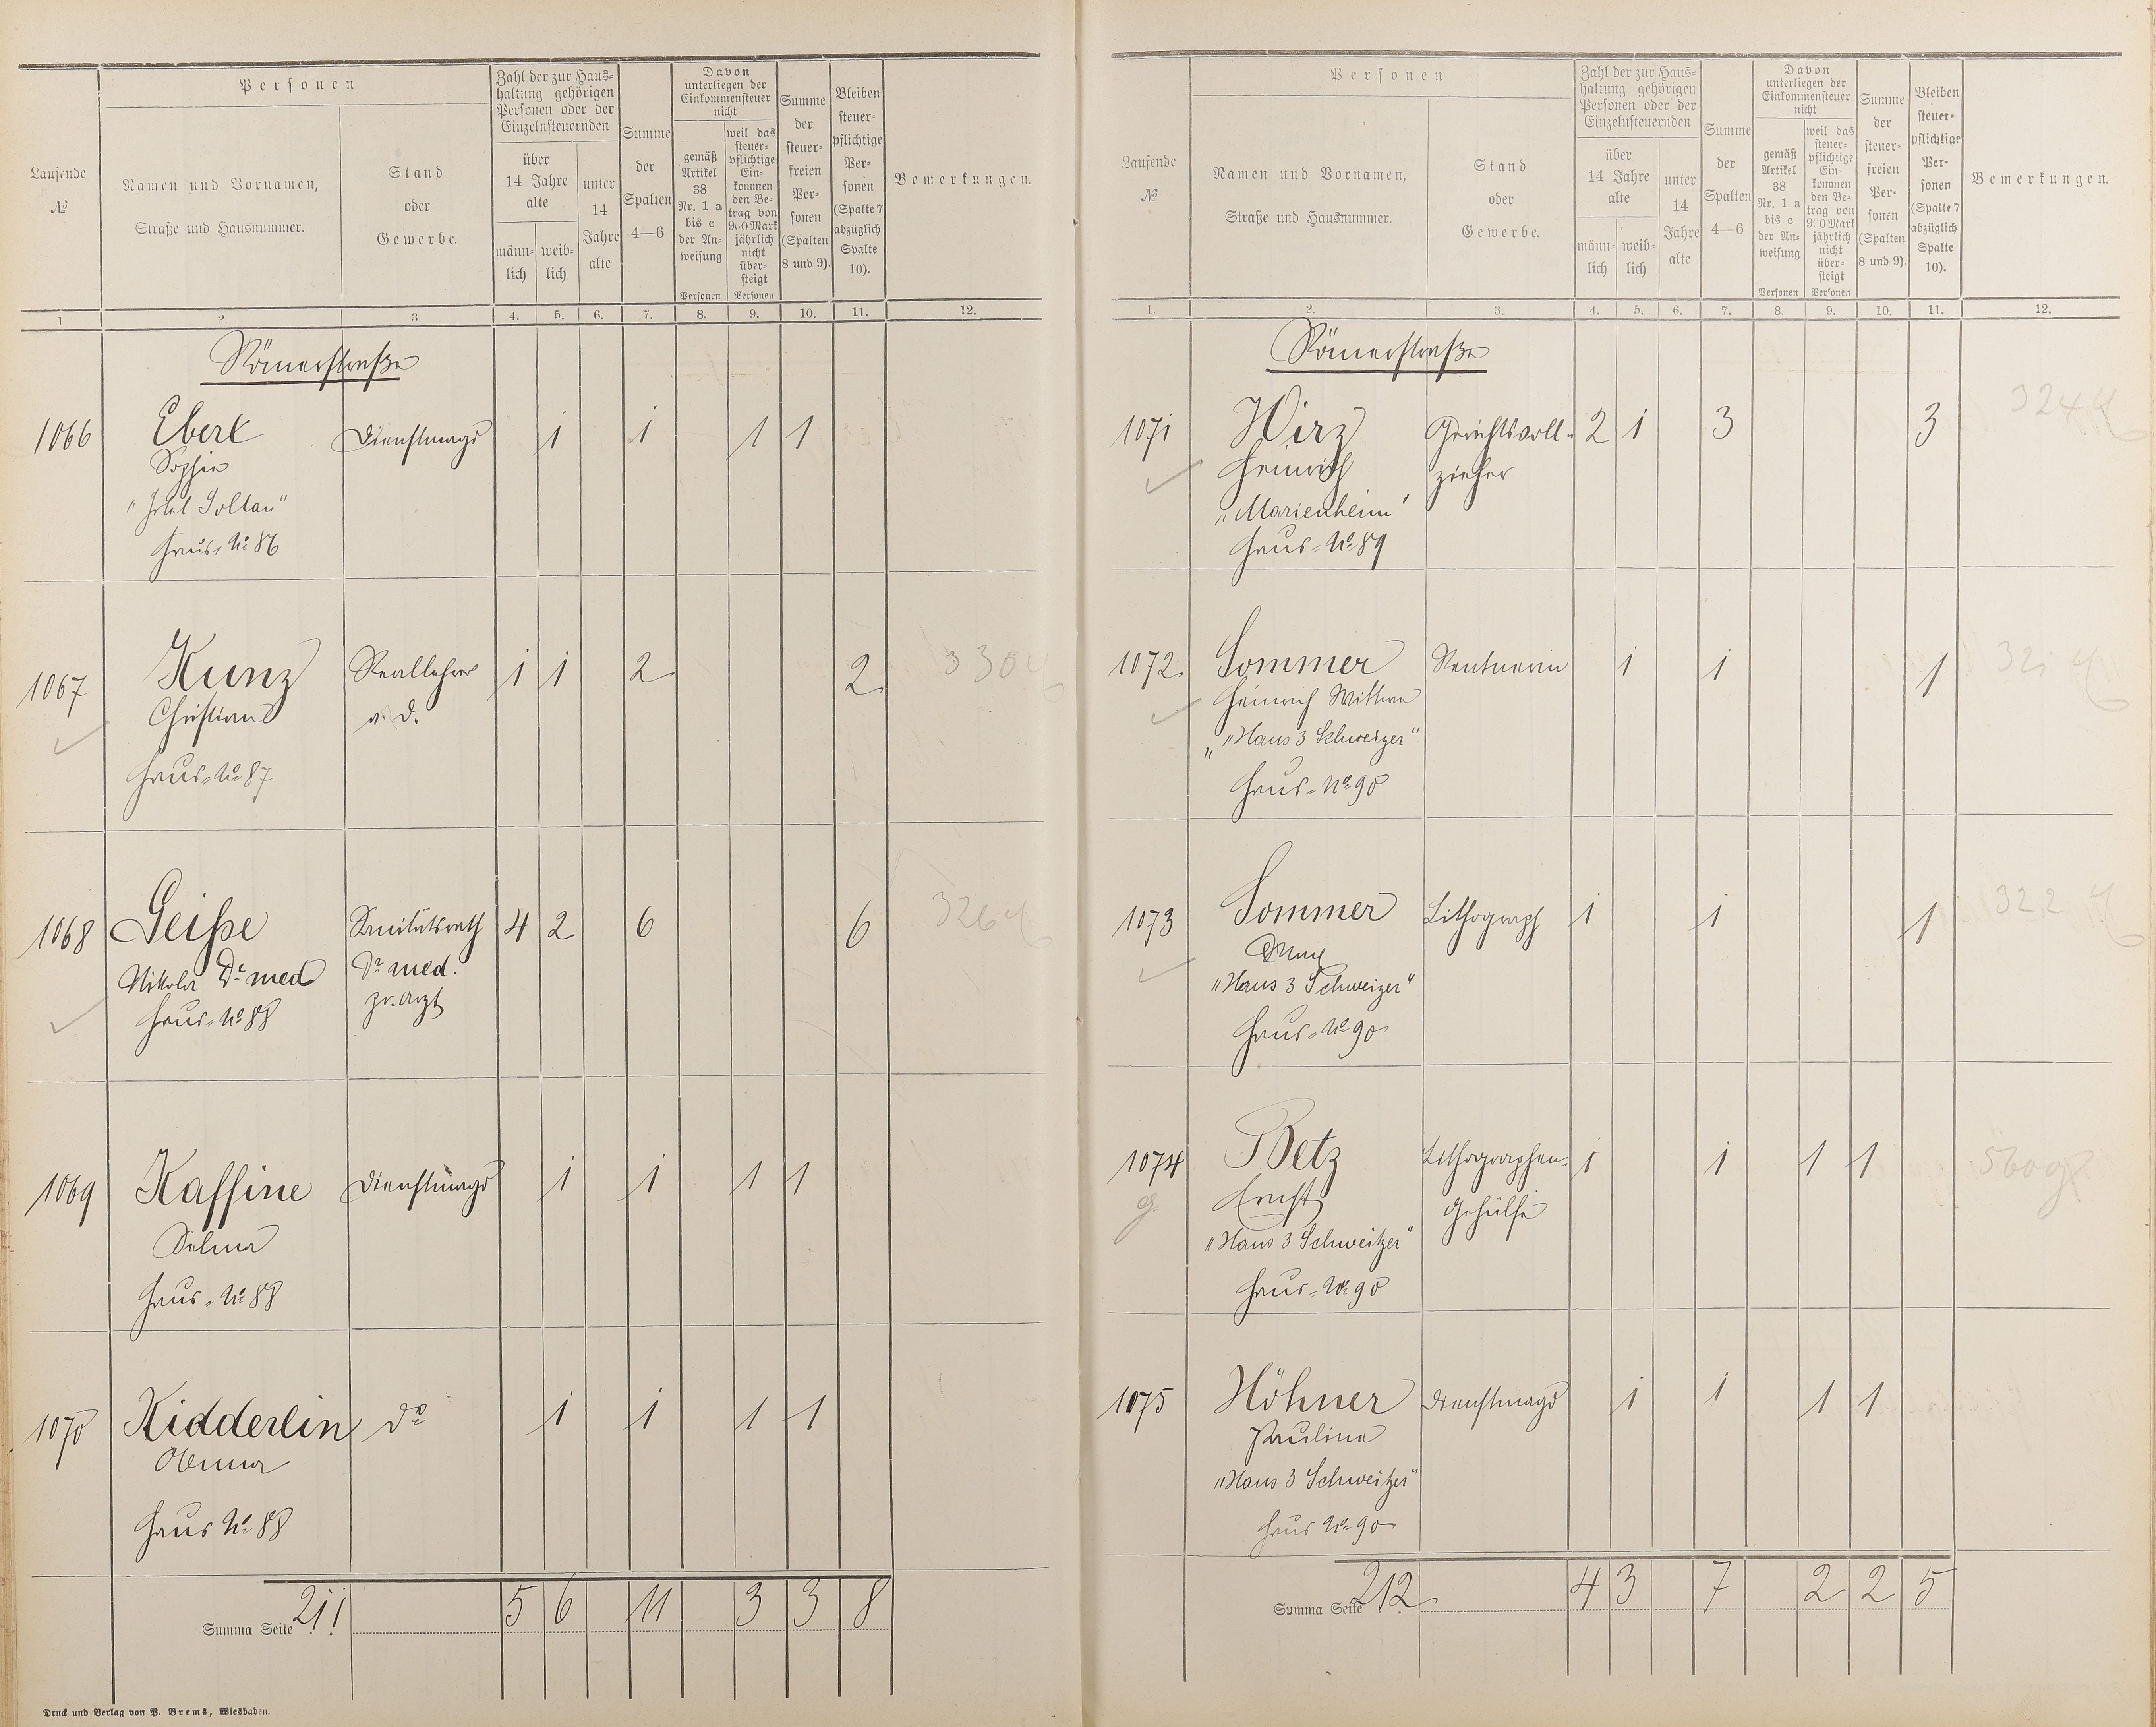 Laufende
№
Personen
Namen und Vornamen,
Straße und Hausnummer.
Stand
oder
Gewerbe.
Zahl der zur Haus-
haltung gehörigen
Personen oder der
Einzelnsteuernden
über
14 Jahre
alte
männ-
lich
weib-
lich
unter
14
Jahre
alte
Summe
der
Spalten
4—6
Davon
unterliegen der
Einkommensteuer
nicht
gemäß
Artikel
38
Nr. 1 a
bis c
der An-
weisung
Personen
weil das
steuer-
pflichtige
Ein-
kommen
den Be-
trag von
900 Mark
jährlich
nicht
über-
steigt
Personen
Summe
der
steuer-
freien
Per-
sonen
(Spalten
8 und 9)
Bleiben
steuer-
pflichtige
Per-
sonen
(Spalte 7
abzüglich
Spalte
10).
Bemerkungen.
1 2. 3. 4. 5. 6. 7. 8. 9. 10. 11. 12.
Römerstraße
1066 Eberl Dienstmagd 1 1 1 1
Sophie
"Hotel Soltau"
Haus-No 86
1067 Kunz Reallehrer 1 1 2 2 330
Christian a. D.
Haus-No 87
1068 Geiße Sanitätsrath 4 2 6 6 326
Nikolai Dr. med Dr. med.
Haus-No 88 pr. Arzt
1069 Kaffine Dienstmagd 1 1 1 1
Selma
Haus-No 88
1070 Kidderlin do 1 1 1 1
Anna
Haus No 88
Summa Seite 211 5 6 11 3 3 8
Druck und Verlag von P. Brems, Wiesbaden.
Laufende
№
Personen
Namen und Vornamen,
Straße und Hausnummer.
Stand
oder
Gewerbe.
Zahl der zur Haus-
haltung gehörigen
Personen oder der
Einzelnsteuernden
über
14 Jahre
alte
männ-
lich
weib-
lich
unter
14
Jahre
alte
Summe
der
Spalten
4—6
Davon
unterliegen der
Einkommensteuer
nicht
gemäß
Artikel
38
Nr. 1 a
bis c
der An-
weisung
Personen
weil das
steuer-
pflichtige
Ein-
kommen
den Be-
trag von
900 Mark
jährlich
nicht
über-
steigt
Personen
Summe
der
steuer-
freien
Per-
sonen
(Spalten
8 und 9)
Bleiben
steuer-
pflichtige
Per-
sonen
(Spalte 7
abzüglich
Spalte
10).
Bemerkungen.
1. 2. 3. 4. 5. 6. 7. 8. 9. 10. 11. 12.
Römerstraße
1071 Wirz Gerichtsvoll- 2 1 3 3 324
Heinrich zieher
"Marienheim"
Haus-No 89
1072 Sommer Rentnerin 1 1 1 321
Heinrich Wittwe
"Haus 3 Schweizer"
Haus-No 90
1073 Sommer Lithograph 1 1 1 322
Max
"Haus 3 Schweizer"
Haus-No 90
1074 Betz Lithographen- 1 1 1 1 560
Ernst Gehülfe
"Haus 3 Schweitzer"
Haus-No 90
1075 Höhner Dienstmagd 1 1 1 1
Pauline
"Haus 3 Schweitzer"
Haus No 90
Summa Seite 212 4 3 7 2 2 5